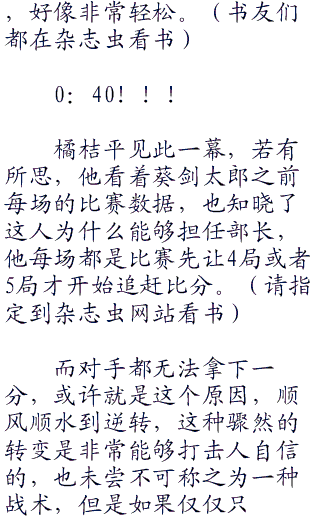 ，好像非常轻松。（书友们
都在杂志虫看书）
0：40！！！
橘桔平见此一幕，若有
所思，他看着葵剑太郎之前
每场的比赛数据，也知晓了
这人为什么能够担任部长，
他每场都是比赛先让4局或者
5局才开始追赶比分。（请指
定到杂志虫网站看书）
而对手都无法拿下一
分，或许就是这个原因，顺
风顺水到逆转，这种骤然的
转变是非常能够打击人自信
的，也未尝不可称之为一种
战术，但是如果仅仅只